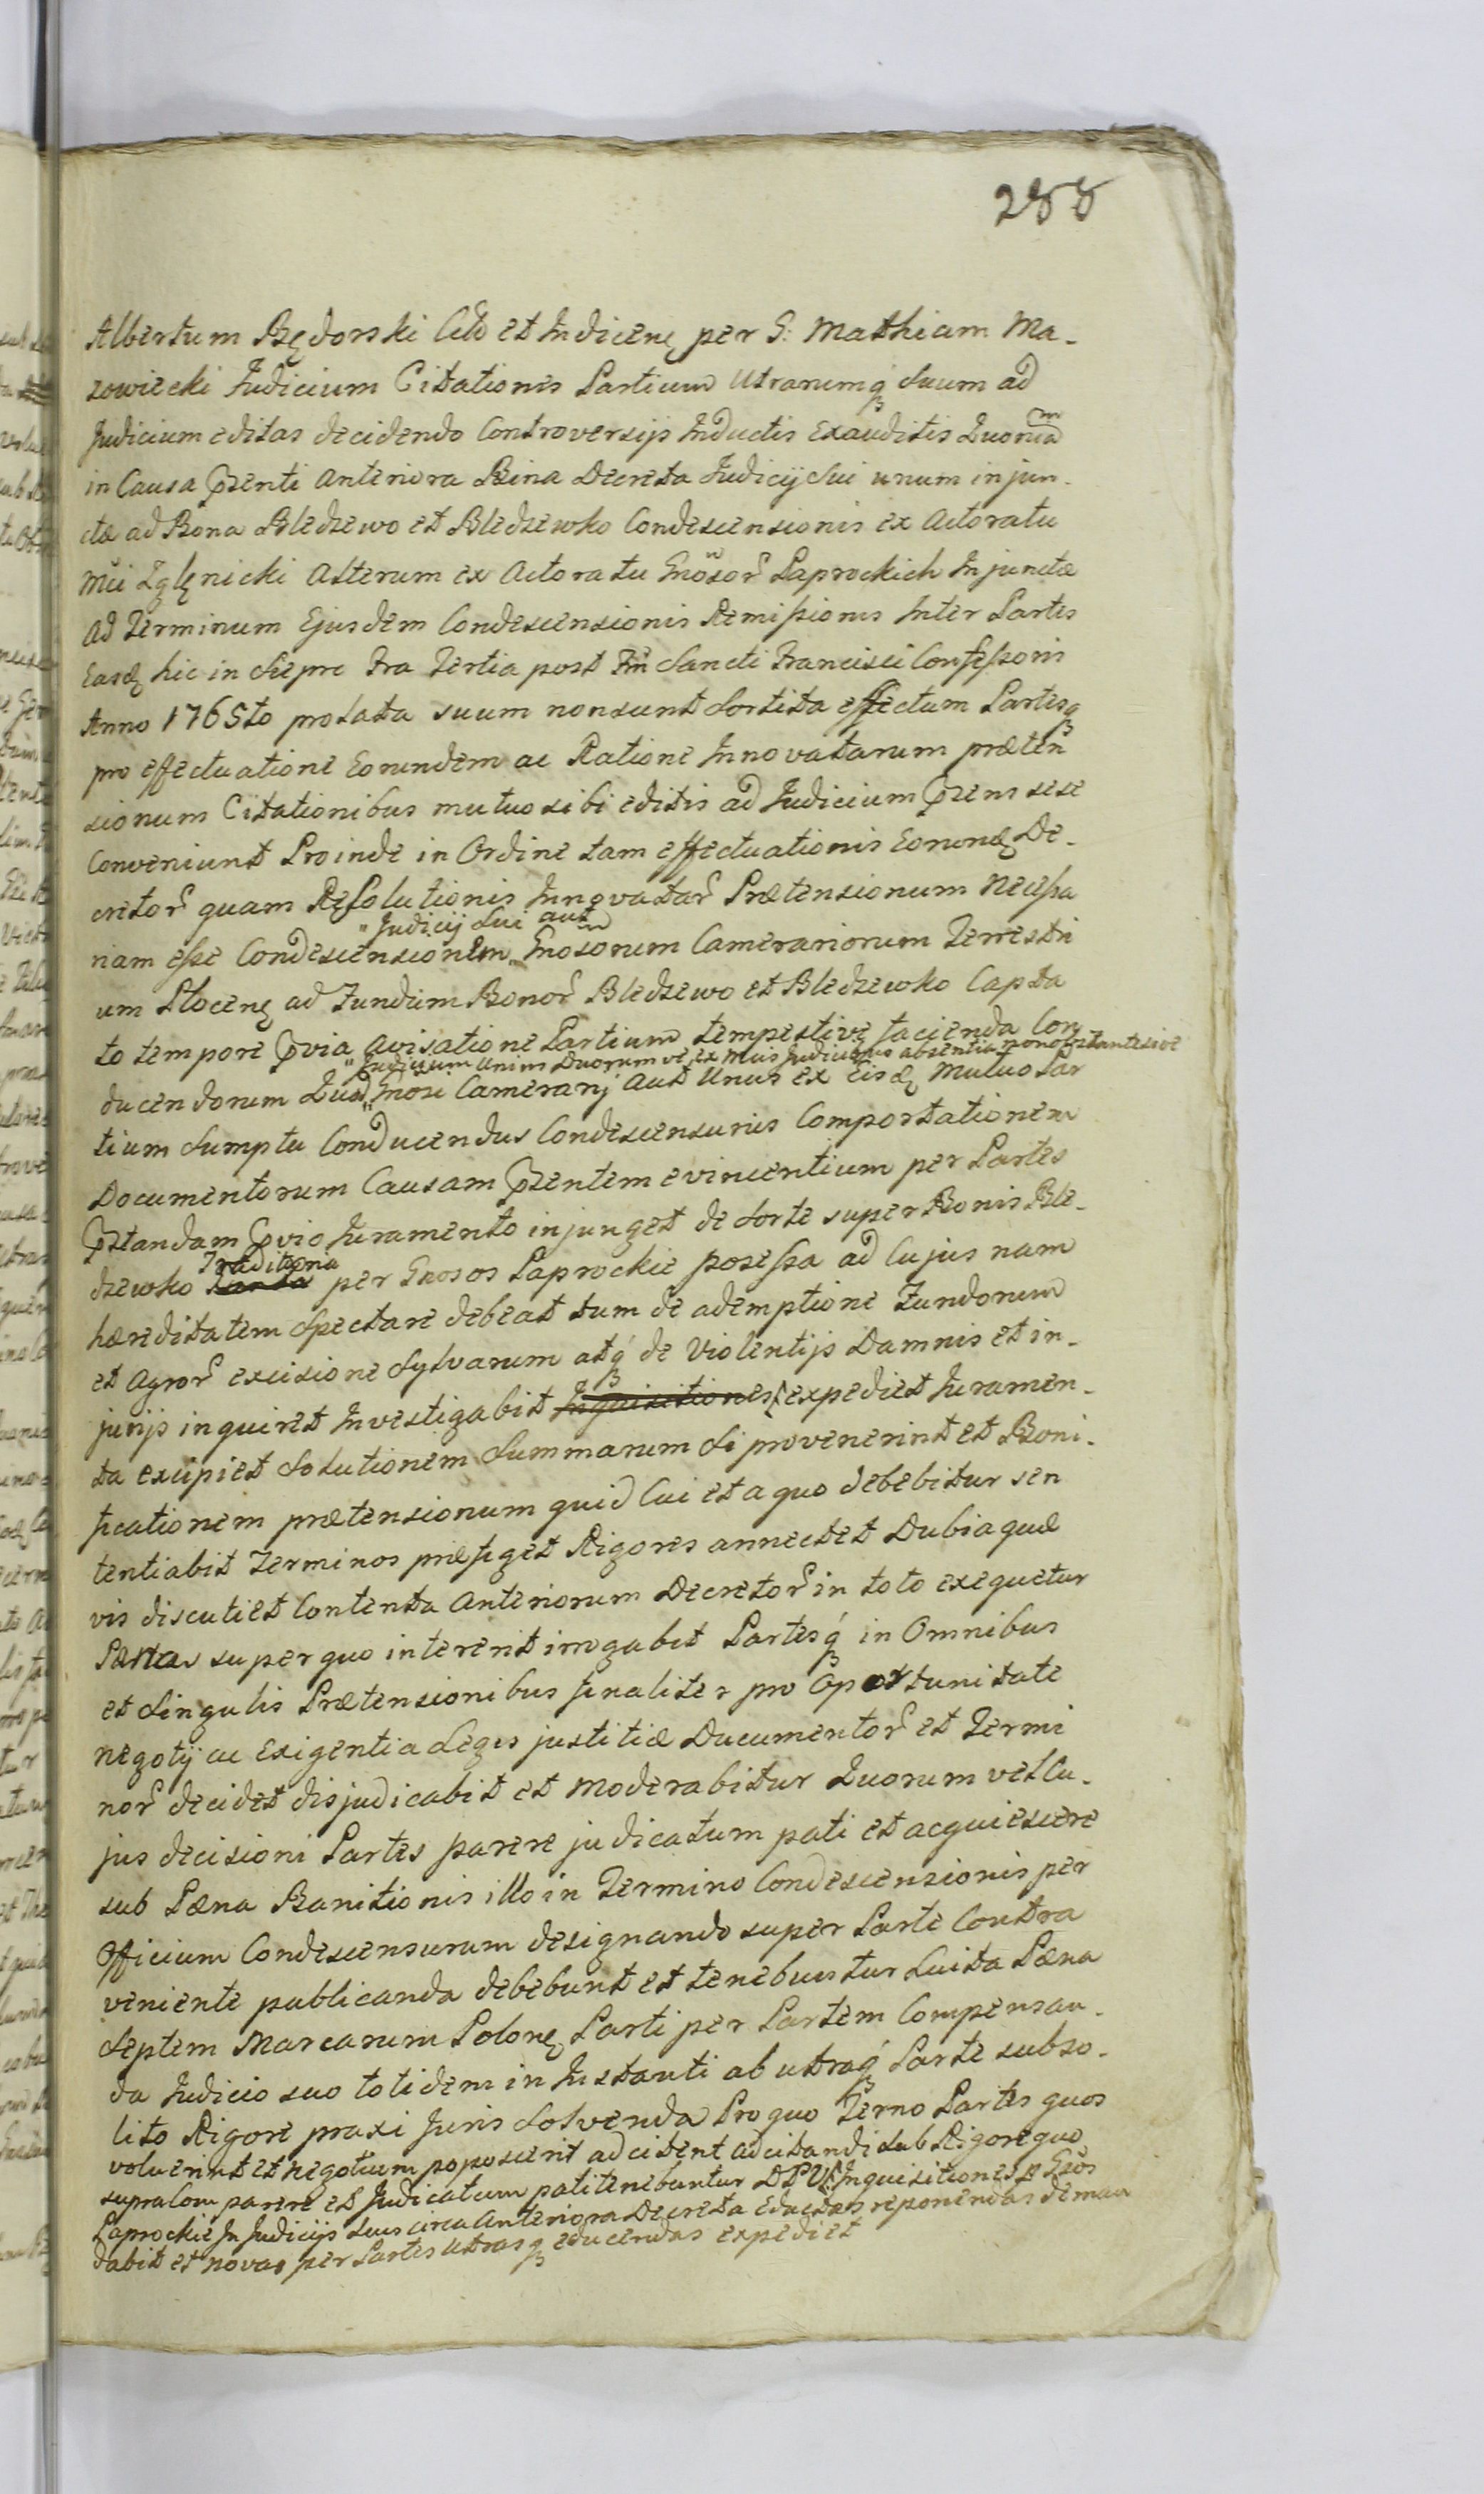 288
Albertum Będorski Citõ et Judicenę per G: Mathiam Ma-
zowiecki Judicium Citationes Partium Utrarumq́ Suum ad
Judicium editas decidendo Controversijs Inductis Exauditis Quoniam
in Causa p̃zenti Anteriora Bina Decreta Judicij Sui unum injun-
ctæ ad Bona Bledzewo et Bledzewko Condescensionis ex Actoratu
Mc̃i Zglęnicki Alterum ex Actoratu Gñosor̃ Paprockich Injunctæ
ad Terminum Ejusdem Condescensionis Remissionis Inter Partes
Easdę hic in Siepre Fra Tertia post Fm̃ Sancti Francisci Confessoris
Anno 1765to prolata suum non sunt Sortita effectum Partesq
pro effectuatione Eorundem ac Ratione Innovatarum præten
sionum Citationibus mutuo sibi editis ad Judicium p̃zens sese
Conveniunt Proinde in Ordine tam effectuationis Eorundę De-
cretor̃ quam Resolutionis Innovatar̃ Prætensionum Necessa
" Judicij Sui aut
riam esse Condescensionem " Gnosorum Camerariorum Terrestri
um Plocenę ad Fundum Bonor̃ Bledzewo et Bledzewko Capta
to tempore p̃via avisatione Partium tempestive facienda Con
" Judicium Unius Duorumve ex Mcis Judicibus absentia non obstante sive
ducendorum Quod " Gnosi Camerarij aut Unus ex Eisdę Mutuo Par
tium Sumptu Conducendus Condescensuris Comportationem
Documentorum Causam p̃zentem evincentium per Partes
p̃standam p̃vio Juramento injunget de Sorte super Bonis Ble-
Traditoria
dzewko per Gnosos Paprockie possessa ad Cujus nam
hæreditatem Spectare debeat tum de ademptione Fundorum
et Agror̃ excisione Sylvarum atq́ de Violentijs Damnis et in-
jurijs inquiret Investigabit Inquisitiones expediet Juramen-
ta excipiet Solutionem Summarum Si provenerint et Boni-
ficationem prætensionum quid Cui et a quo debebitur sen
tentiabit Terminos præfiget Rigores annectet Dubia quæ
vis discutiet Contenta Anteriorum Decretor̃ in toto exequetur
Pænas super quo intererit irrogabit Partesq́ in Omnibus
et Singulis Prætensionibus finaliter pro Oportunitate
negotij ac Exigentia Legis justitiæ Documentor̃ et Termi
nor̃ decidet disjudicabit et moderabitur Quorum vel Cu-
jus decisioni Partes parere judicatum pati et acquiescere
sub Pæna Banitionis illo in Termino Condescensionis per
Officium Condescensurum designando super Parte Contra
veniente publicanda debebunt et tenebuntur Luita Pæna
Septem Marcarum Polonę Parti per Partem Compensan-
da Judicio suo totidem in Instanti ab utraq́ Parte sub so-
lito Rigore praxi Juris Solvenda Pro quo Terno Partes quos
voluerint et negotium poposcerit adcitent adcitandi sub Rigore quo
supra Com parere et Judicatum pati tenebuntur DPVS Inquisitiones p Gños
Paprockie In Judicijs Suis circa Anteriora Decreta Eductas reponendas deman
dabit et novas per Partes utrasq educendas expediet